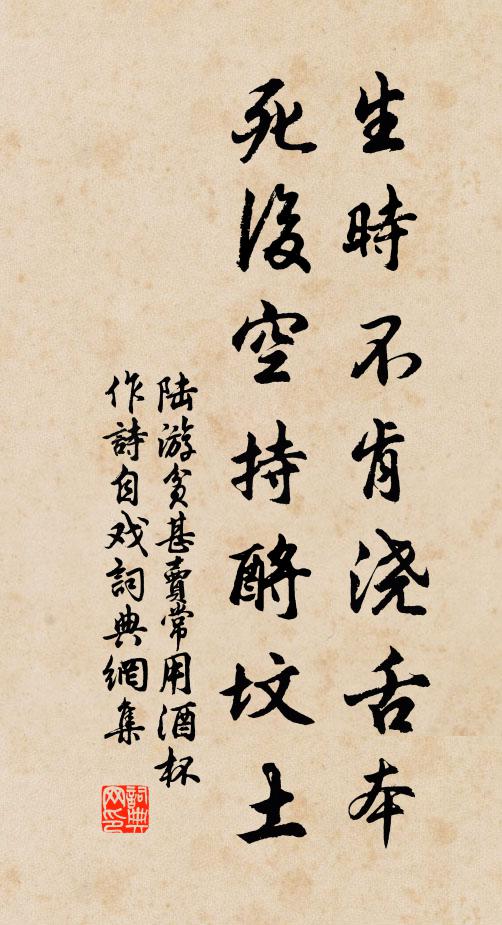 生時不肯浇舌本
死後空持酹坟土
陆游贫甚賣常用酒杯
作詩自戏詞典網集
詞典
网印